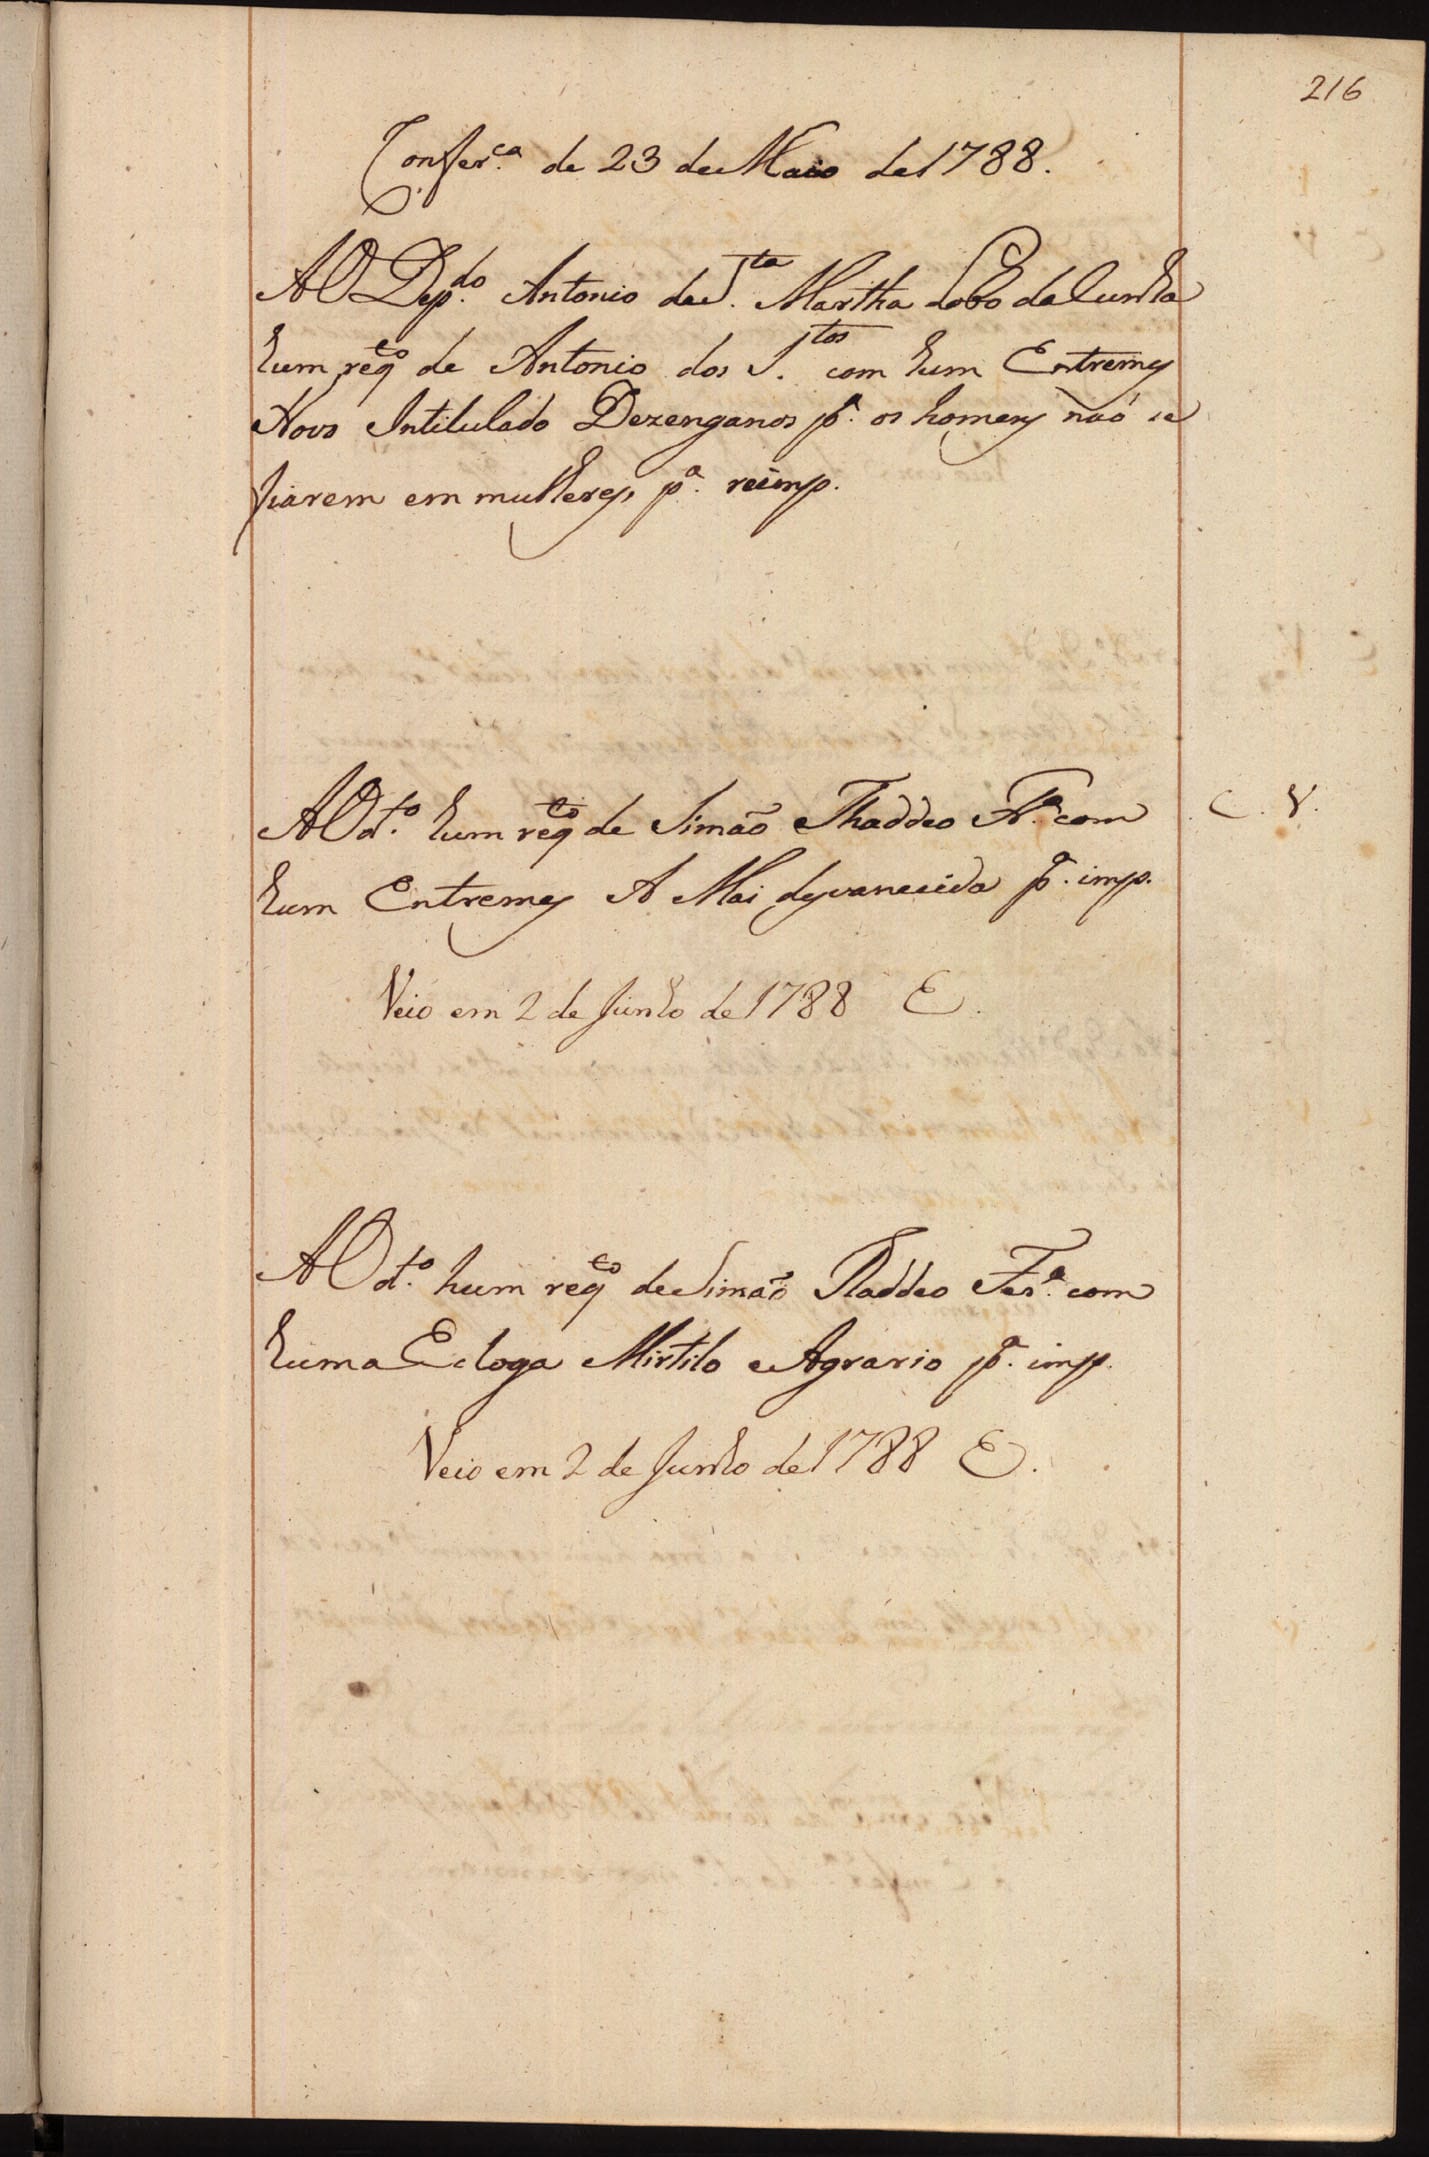 216
Confer.ca de 23 de Maio de 1788.
AO Dep.do Antonio de S.ta Martha Lobo da Cunha
hum reqto de Antonio dos S.tos com hum Entremes
Novo Intitulado Dezenganos p.a os homens naõ se
fiarem em mulheres, p.a reimp.
AO d.to hum reqto de Simaõ Thaddeo Fr.a com C. V.
hum Entremes A Mai desvanecida p.a imp.
Veio em 2 de Junho de 1788 E.
AO d.to hum reqto de Simaõ Thaddeo Fer.a com
huma Ecloga Mirtilo e Agrario p.a imp.
Veio em 2 de Junho de 1788 E.